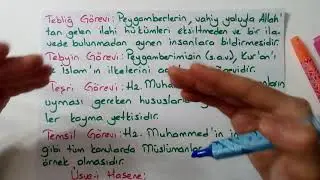 Tebliğ Görevi: Peygamberlerin, vahiy yoluyla Allah'
tan gelen ilahi hükümleri eksiltmeden ve bir ila-
vede bulunmadan aynen insanlara bildirmesidir.
Tebyin Görevi: Peygamberimizin (s.a.v), Kur'an'ı
ve İslam'ın ilkelerini
Teşri Görevi: Hz. Muha
uyması gereken hususlar
ler koyma yetkisidir.
Temsil Görevi: Hz. Muhammed'in in
gibi tüm konularda Müslümanla
örnek olmasıdır.
Üsve-i Hasene: